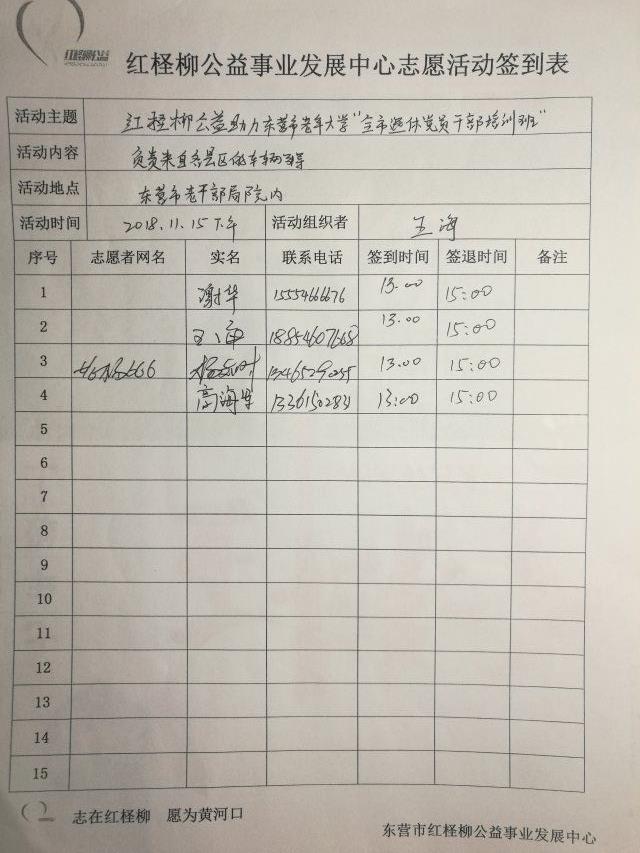 红柽柳公益
红柽柳公益事业发展中心志愿活动签到表
活动主题 红柽柳公益助力东营市老年大学"全市退休党员干部培训班"
活动内容 负责来自各县区的车辆引导
活动地点 东营市老干部局院内
活动时间 2018.11.15下午 活动组织者 王海
序号 志愿者网名 实名 联系电话 签到时间 签退时间 备注
1 谢华 15554666676 13:00 15:00
2 18854607668 13:00 15:00
3 13:00 15:00
4 高海 13:00 15:00
5
6
7
8
9
10
11
12
13
14
15
志在红柽柳 愿为黄河口
东营市红柽柳公益事业发展中心